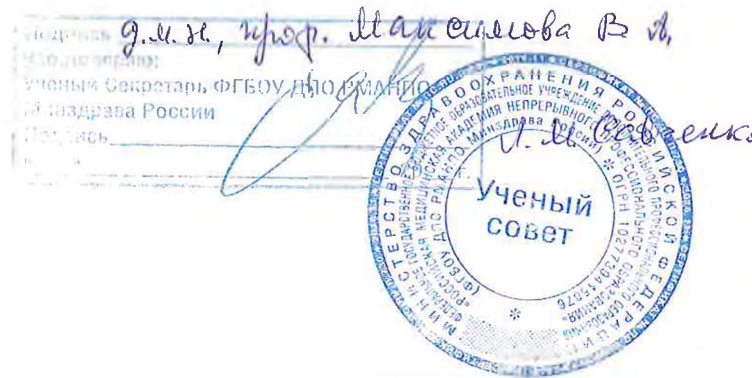 Подпись д.м.н., проф. Максимова В. А.
удостоверяю:
Ученый Секретарь ФГБОУ ДПО РМАНПО
Минздрава России
Подпись
Л. М. Савченко
МИНИСТЕРСТВО ЗДРАВООХРАНЕНИЯ РОССИЙСКОЙ ФЕДЕРАЦИИ
ФЕДЕРАЛЬНОЕ ГОСУДАРСТВЕННОЕ БЮДЖЕТНОЕ ОБРАЗОВАТЕЛЬНОЕ УЧРЕЖДЕНИЕ ДОПОЛНИТЕЛЬНОГО ПРОФЕССИОНАЛЬНОГО ОБРАЗОВАНИЯ
«РОССИЙСКАЯ МЕДИЦИНСКАЯ АКАДЕМИЯ НЕПРЕРЫВНОГО ПРОФЕССИОНАЛЬНОГО ОБРАЗОВАНИЯ»
(ФГБОУ ДПО РМАНПО Минздрава России) * ОГРН
Ученый
совет